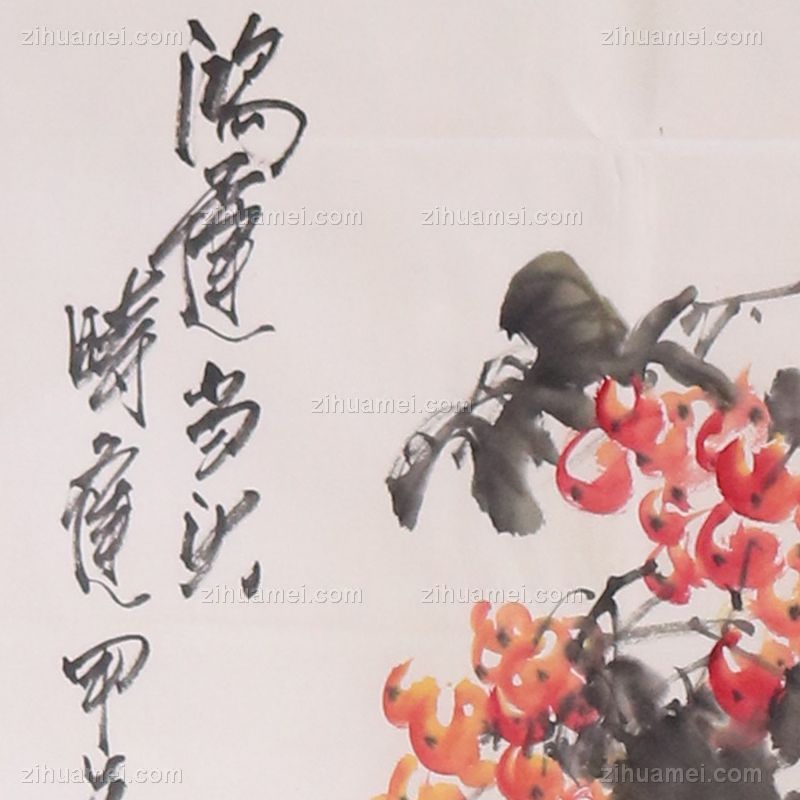 zihuamei.com zihuamei.com
鸿運当头
時
甲
zihuamei.com zihuamei.com
zihuamei.com
zihuamei.com zihuamei.com
zihuamei.com zihuamei.com